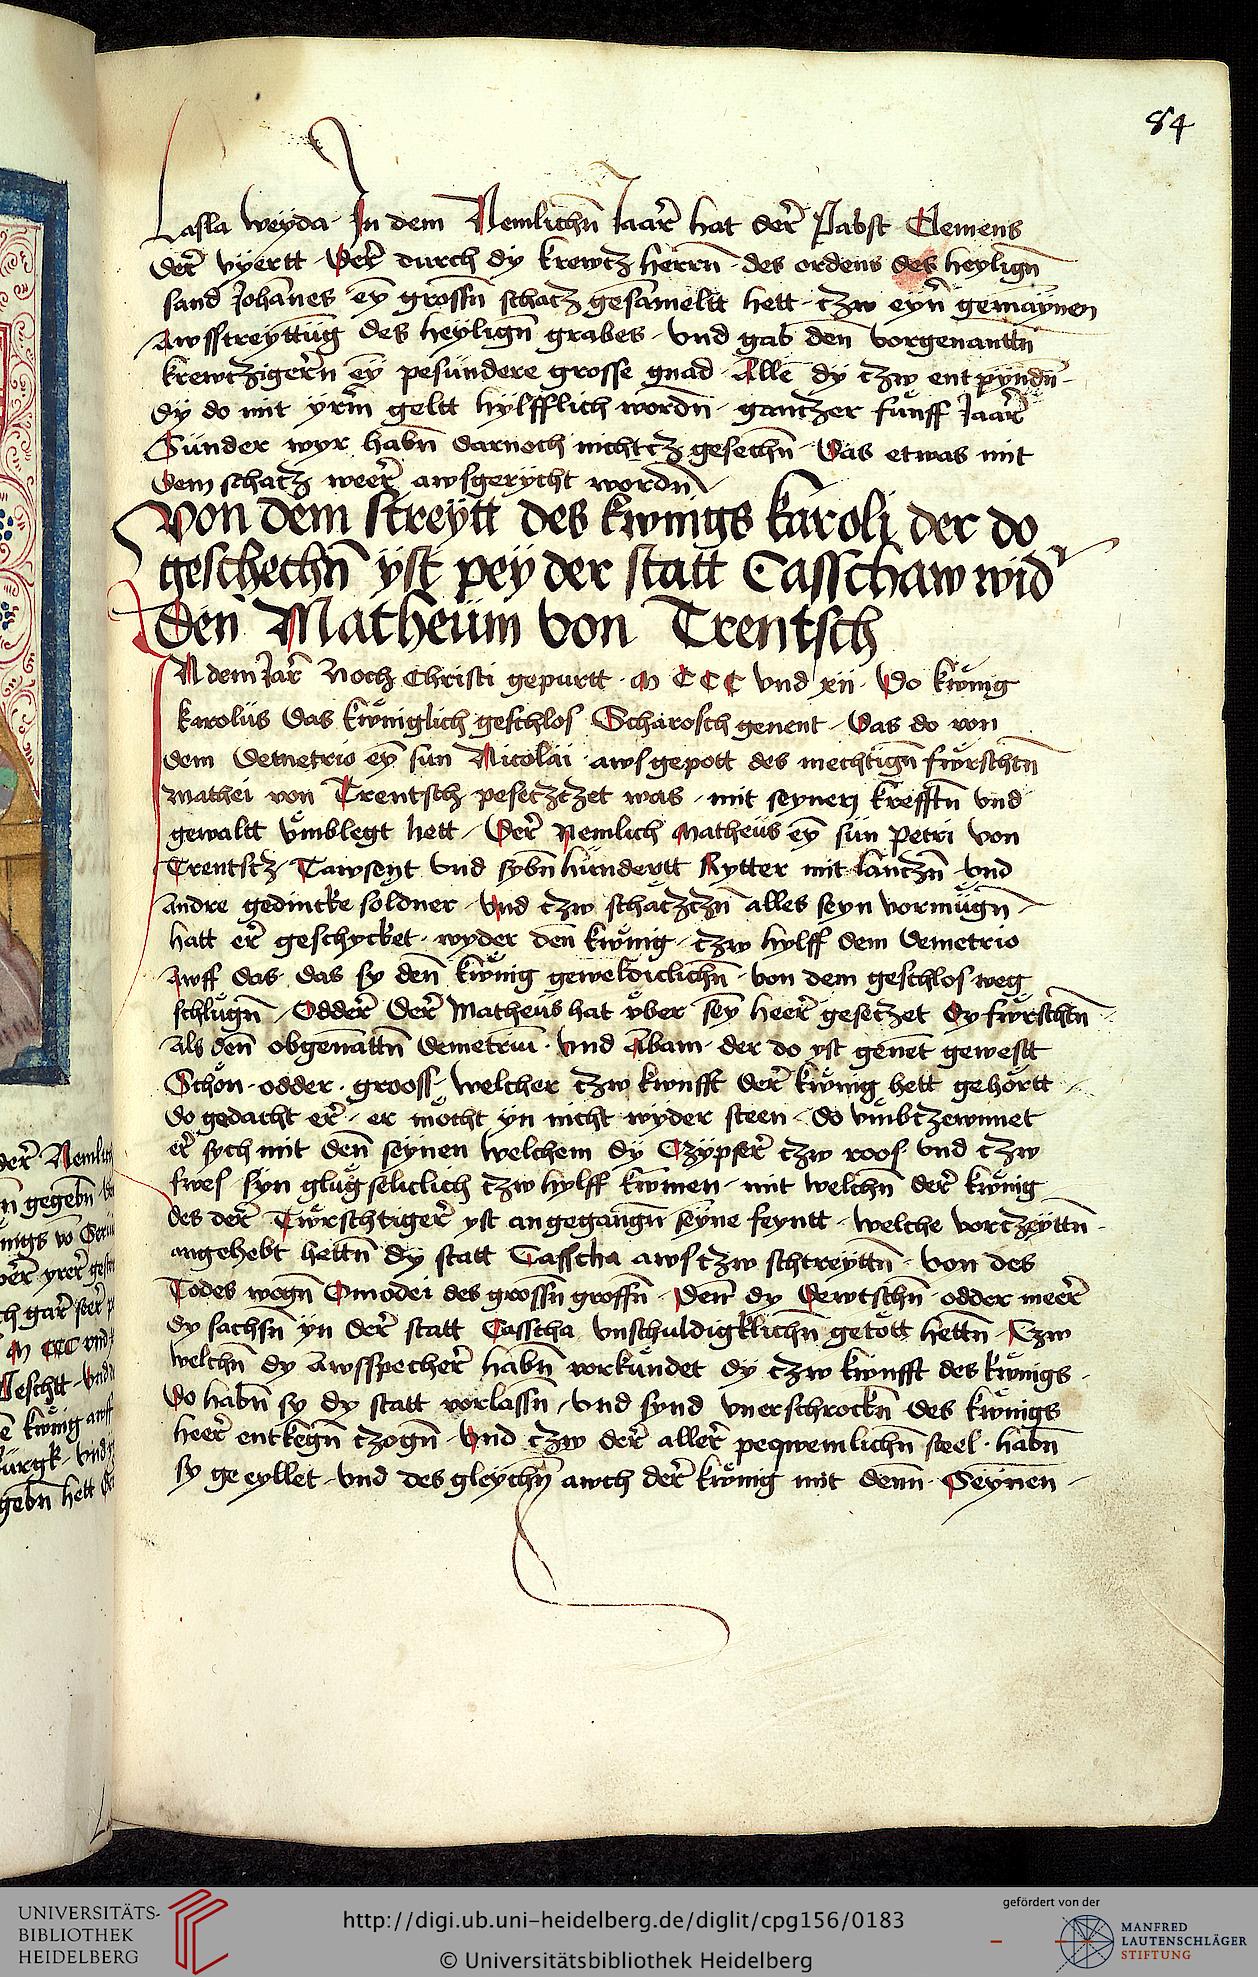 84
Lasla weyda · In dem Nemlichn̄ Jaar̄ hat der̄ Pabst Clemens
der̄ vyertt · Der̄ durch dy krewtz herrn̄ · des ordens des heylign̄
sand Johānes ey̅ grossn̄ schatz gesāmeltt hett · tzw eyn̄ gemaynen
Awsstreyttūg des heylign̄ grabes · vnd gab den̄ vorgenanttn̄
krewtziger̄n ey̅ pesundere grosse gnad · Alle̅ dy tzw entpyndn̄ ·
dy do mit yrm̄ geltt hylfflich wordn̄ · gantzer fünff Jaar̄
Sunder wyr habn̄ darnoch nichttz gesechn̄ · Das etwas mit
dem schatz weer̄ awsgerycht wordn̄
Von dem streytt des kwnigs karolj der do
geschechn̄ yst pey der statt Casschaw wid'
den̄ Matheum von Trentsch
N dem Jar̄ Noch Christi gepurtt · M CCC vnd xii · Do kwnig
karolus das kwniglich geschlos Scharosch genent · Das do von
dem Demetrio ey̅ sun Nicolai · aws gepott des mechtign̄ fwrschtn̄
Mathei von Trentsch pesetztzet was · mit seynen krefftn̄ vnd
gewaltt vmblegt hett · Der̄ Nemlich Matheus ey̅ sun petri von
Trentstz · Tawsent vnd sybn̄ hundertt Rytter mit lantzn̄ vnd
andre gedinckte soldner · vnd tzw schatztzn̄ alles seyn vormugn̄
hatt er̄ geschycket · wyder den̄ kwnig · tzw hylff dem Demetrio
Awff das · das sy den̄ kwnig geweldiclichn̄ · von dem geschlos weg
schlugn̄ · Odder̄ Der̄ Matheus hat yber sey̅ heer̄ gesetzet Dy fwrschtn̄
Als den̄ obgenāttn̄ Demetriū · vnd Abam · der do yst genēt gewestt
Schon · odder · grooss · welcher tzw kwnfft der̄ kwnig hett gehortt
do gedacht er̄ · er mocht yn nicht wyder steen · do vmbtzewnnet
er̄ sych mit den̄ seynen welchem dy Czypser̄ tzw roos · vnd tzw
fwes · syn glugseliclich tzw hylff kwmen · mit welchn̄ der̄ kwnig
des der̄ Twrschtiger̄ yst angegangn̄ seyne feyntt · welche vortzeyttn̄ ·
angehebt hettn̄ dy statt Casscha aws tzw schtreyttn̄ · von des
Todes wegn̄ Omodei des grossn̄ groffn̄ · Den̄ dy Dewtschn̄ · odder meer̄
dy sachsn̄ yn der̄ statt Casscha vnschuldigklichn̄ getott hettn̄ · Tzw
welchn̄ dy Awsspecher̄ habn̄ vorkundet dy tzw kwnfft des kwnigs ·
Do habn̄ sy dy statt vorlassn̄ · vnd synd vnerschrockn̄ des kwnigs
heer̄ entkegn̄ tzogn̄ · vnd tzw der̄ aller̄ peqwemlichn̄ steel · habn̄
sy ge eyllet · vnd des gleychn̄ awch der̄ kwnig mit denn̄ · Seynen
UNIVERSITÄTS-
BIBLIOTHEK
HEIDELBERG
http://digi.ub.uni-heidelberg.de/diglit/cpg156/0183
© Universitätsbibliothek Heidelberg
gefördert von der
MANFRED
LAUTENSCHLÄGER
STIFTUNG